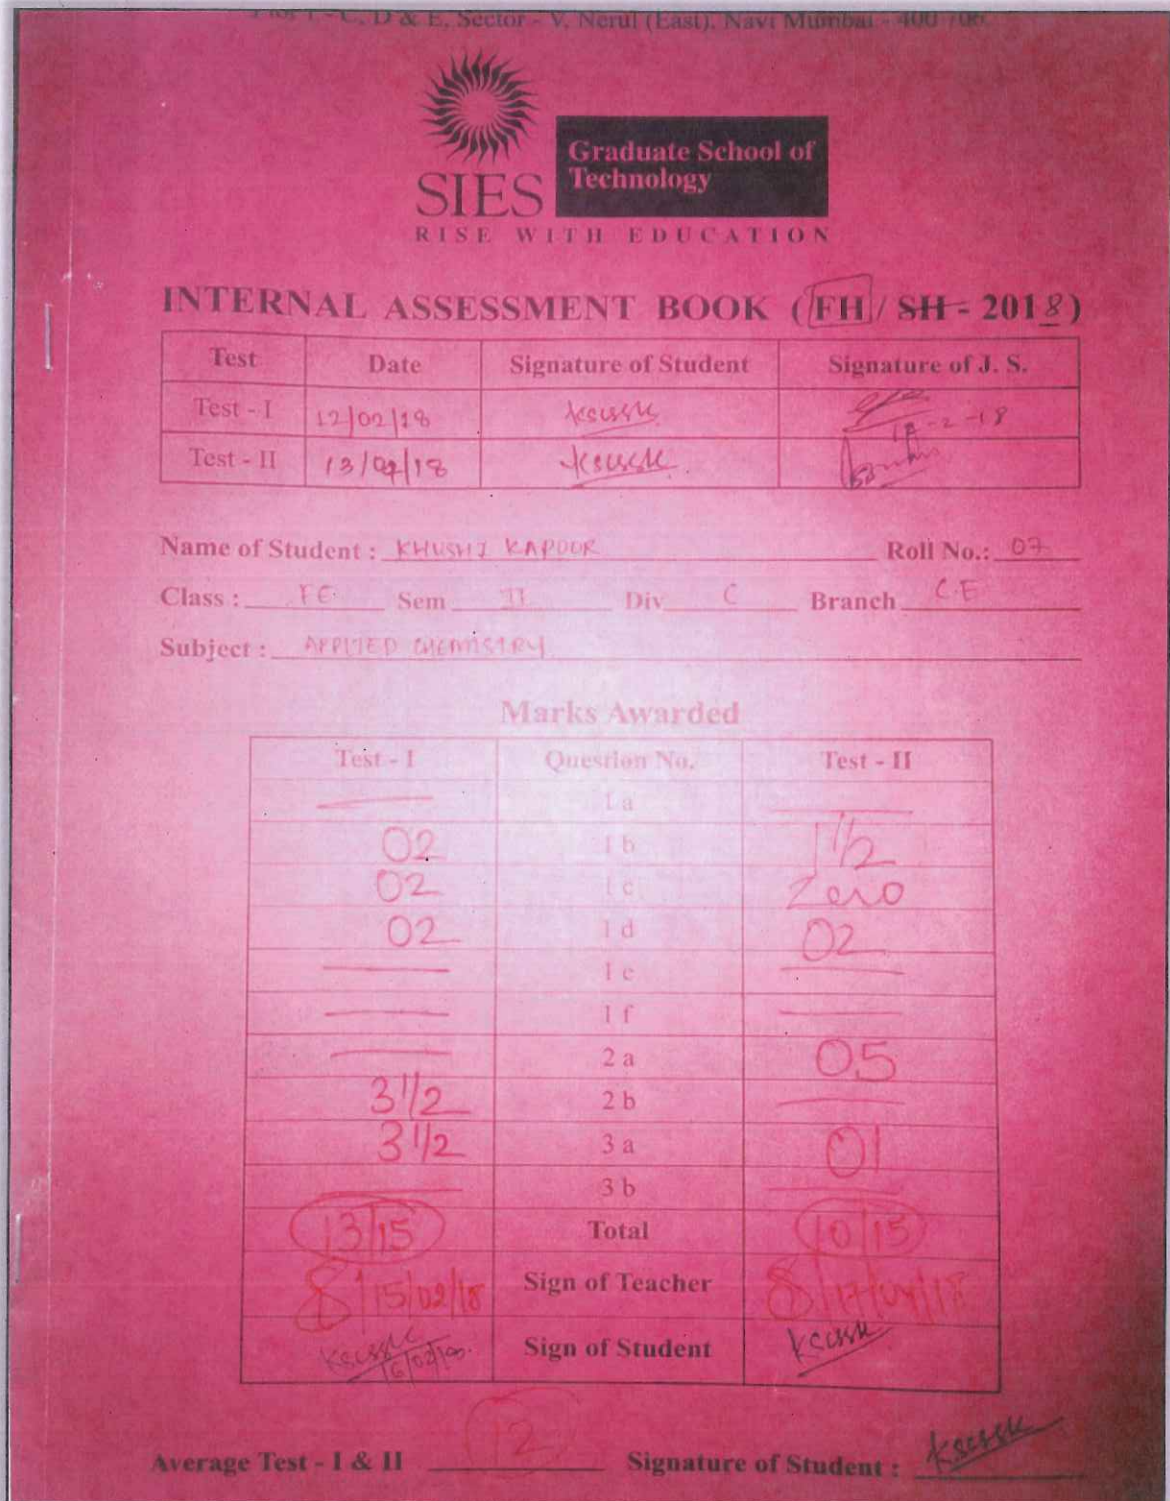 Plot 1 - C, D & E, Sector - V, Nerul (East), Navi Mumbai - 400 706.
SIES
Graduate School of
Technology
RISE WITH EDUCATION
INTERNAL ASSESSMENT BOOK (FH / SH - 2018)
Test Date Signature of Student Signature of J. S.
Test - I 12/02/18 12-2-18
Test - II 13/04/18
Name of Student : KHUSHI KAPOOR Roll No.: 07
Class : FE Sem II Div C Branch C.E
Subject : APPLIED CHEMISTRY
Marks Awarded
Test - I Question No. Test - II
1 a
02 1 b 1 1/2
02 1 c Zero
02 1 d 02
1 e
1 f
2 a 05
3 1/2 2 b
3 1/2 3 a 01
3 b
13/15 Total 10/15
15/02/18 Sign of Teacher 17/04/18
Sign of Student
Average Test - I & II 12 Signature of Student :